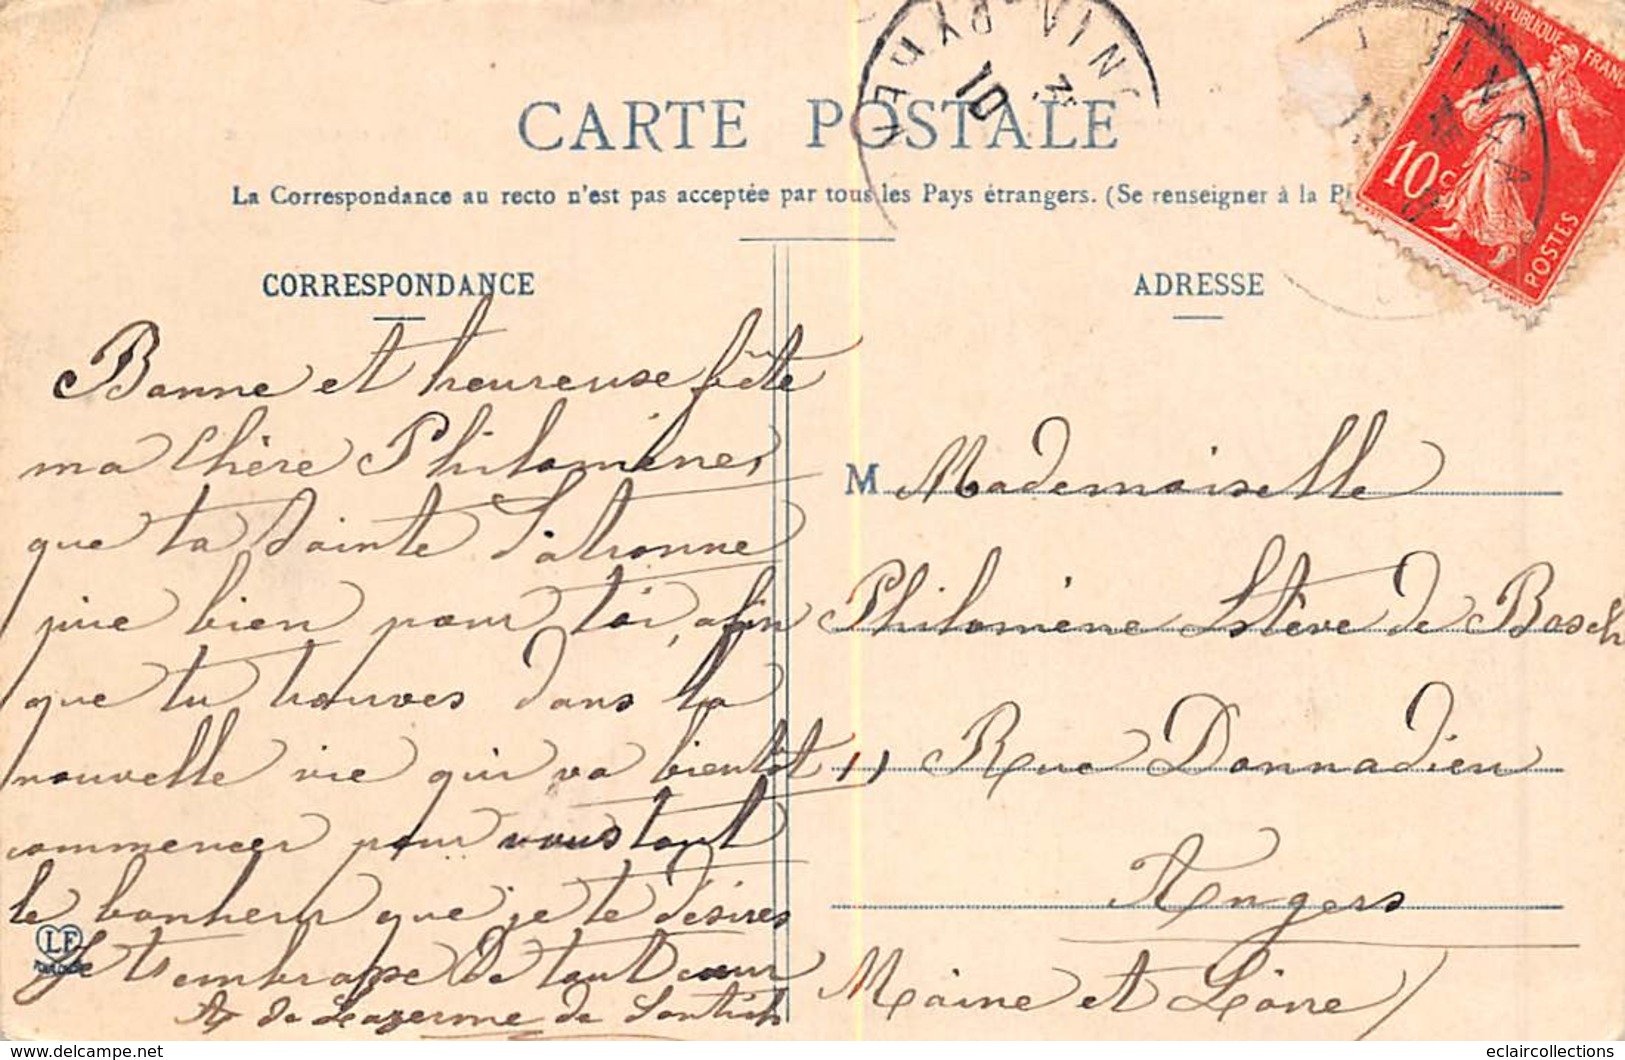 CARTE POSTALE
La Correspondance au recto n'est pas acceptée par tous les Pays étrangers. (Se renseigner à la P
CORRESPONDANCE
ADRESSE
REPUBLIQUE FRANC
10c
POSTES
10
Bonne et heureuse fête
ma Chère Philomène,
que ta Sainte Patronne
prie bien pour toi, afin
que tu trouves dans la
nouvelle vie qui va bientôt
commencer pour vous tout
le bonheur que je te désires
Je t'embrasse de tout cœur
de Lazerme de
M Mademoiselle
Philomène Estève de Bosch
11 Rue Donnadieu
Angers
Maine et Loire
LF
TOULOUSE
eclaircollections